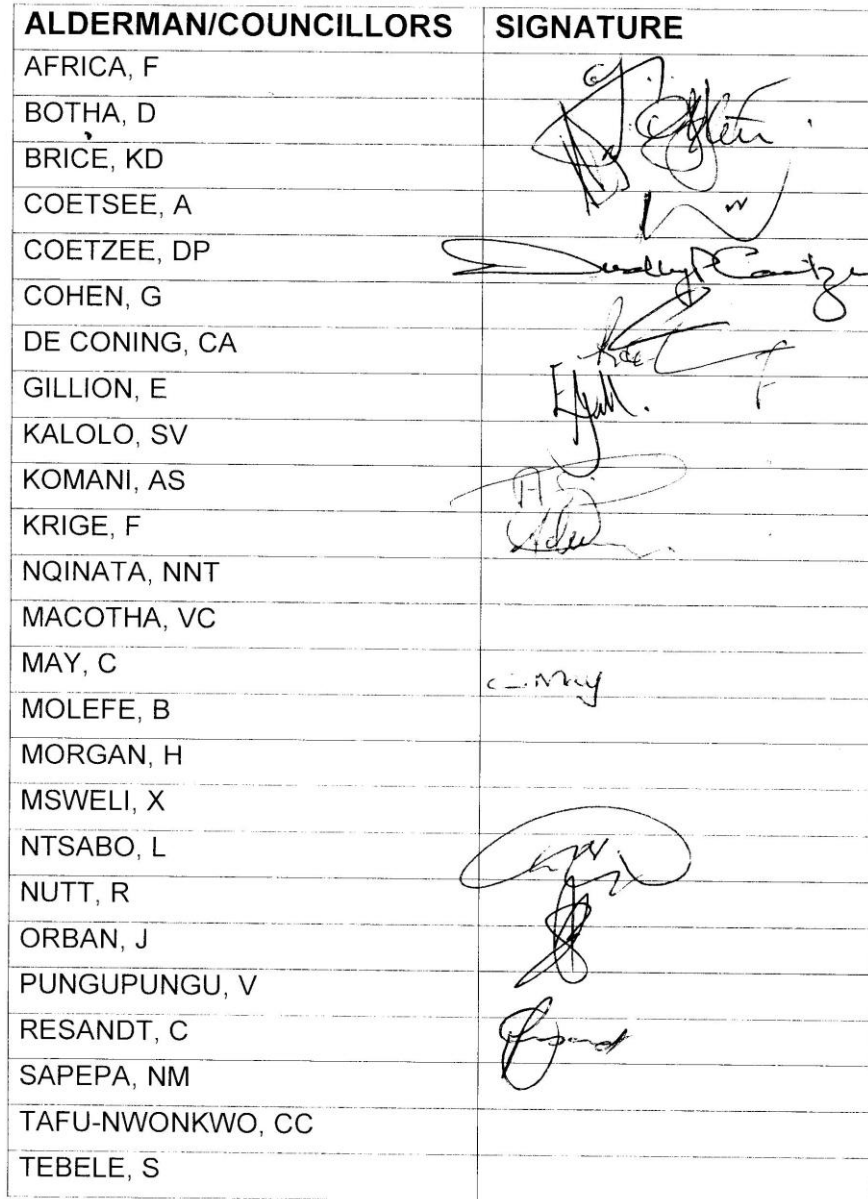 ALDERMAN/COUNCILLORS SIGNATURE
AFRICA, F
BOTHA, D
BRICE, KD
COETSEE, A
COETZEE, DP
COHEN, G
DE CONING, CA
GILLION, E
KALOLO, SV
KOMANI, AS
KRIGE, F
NQINATA, NNT
MACOTHA, VC
MAY, C C. May
MOLEFE, B
MORGAN, H
MSWELI, X
NTSABO, L
NUTT, R
ORBAN, J
PUNGUPUNGU, V
RESANDT, C
SAPEPA, NM
TAFU-NWONKWO, CC
TEBELE, S